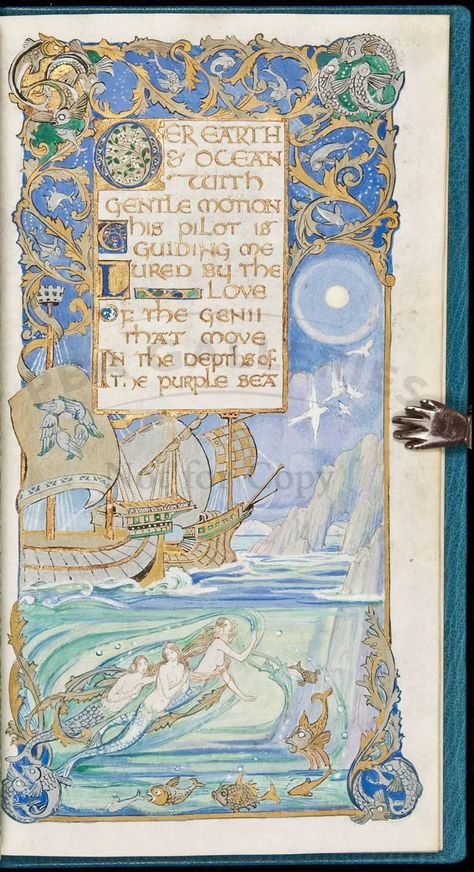 OER EARTH
& OCEAN
WITH
GENTLE MOTION
THIS PILOT IS
GUIDING ME
LURED BY THE
LOVE
OF THE GENII
THAT MOVE
IN THE DEPTHS OF
THE PURPLE SEA
Not for Copy